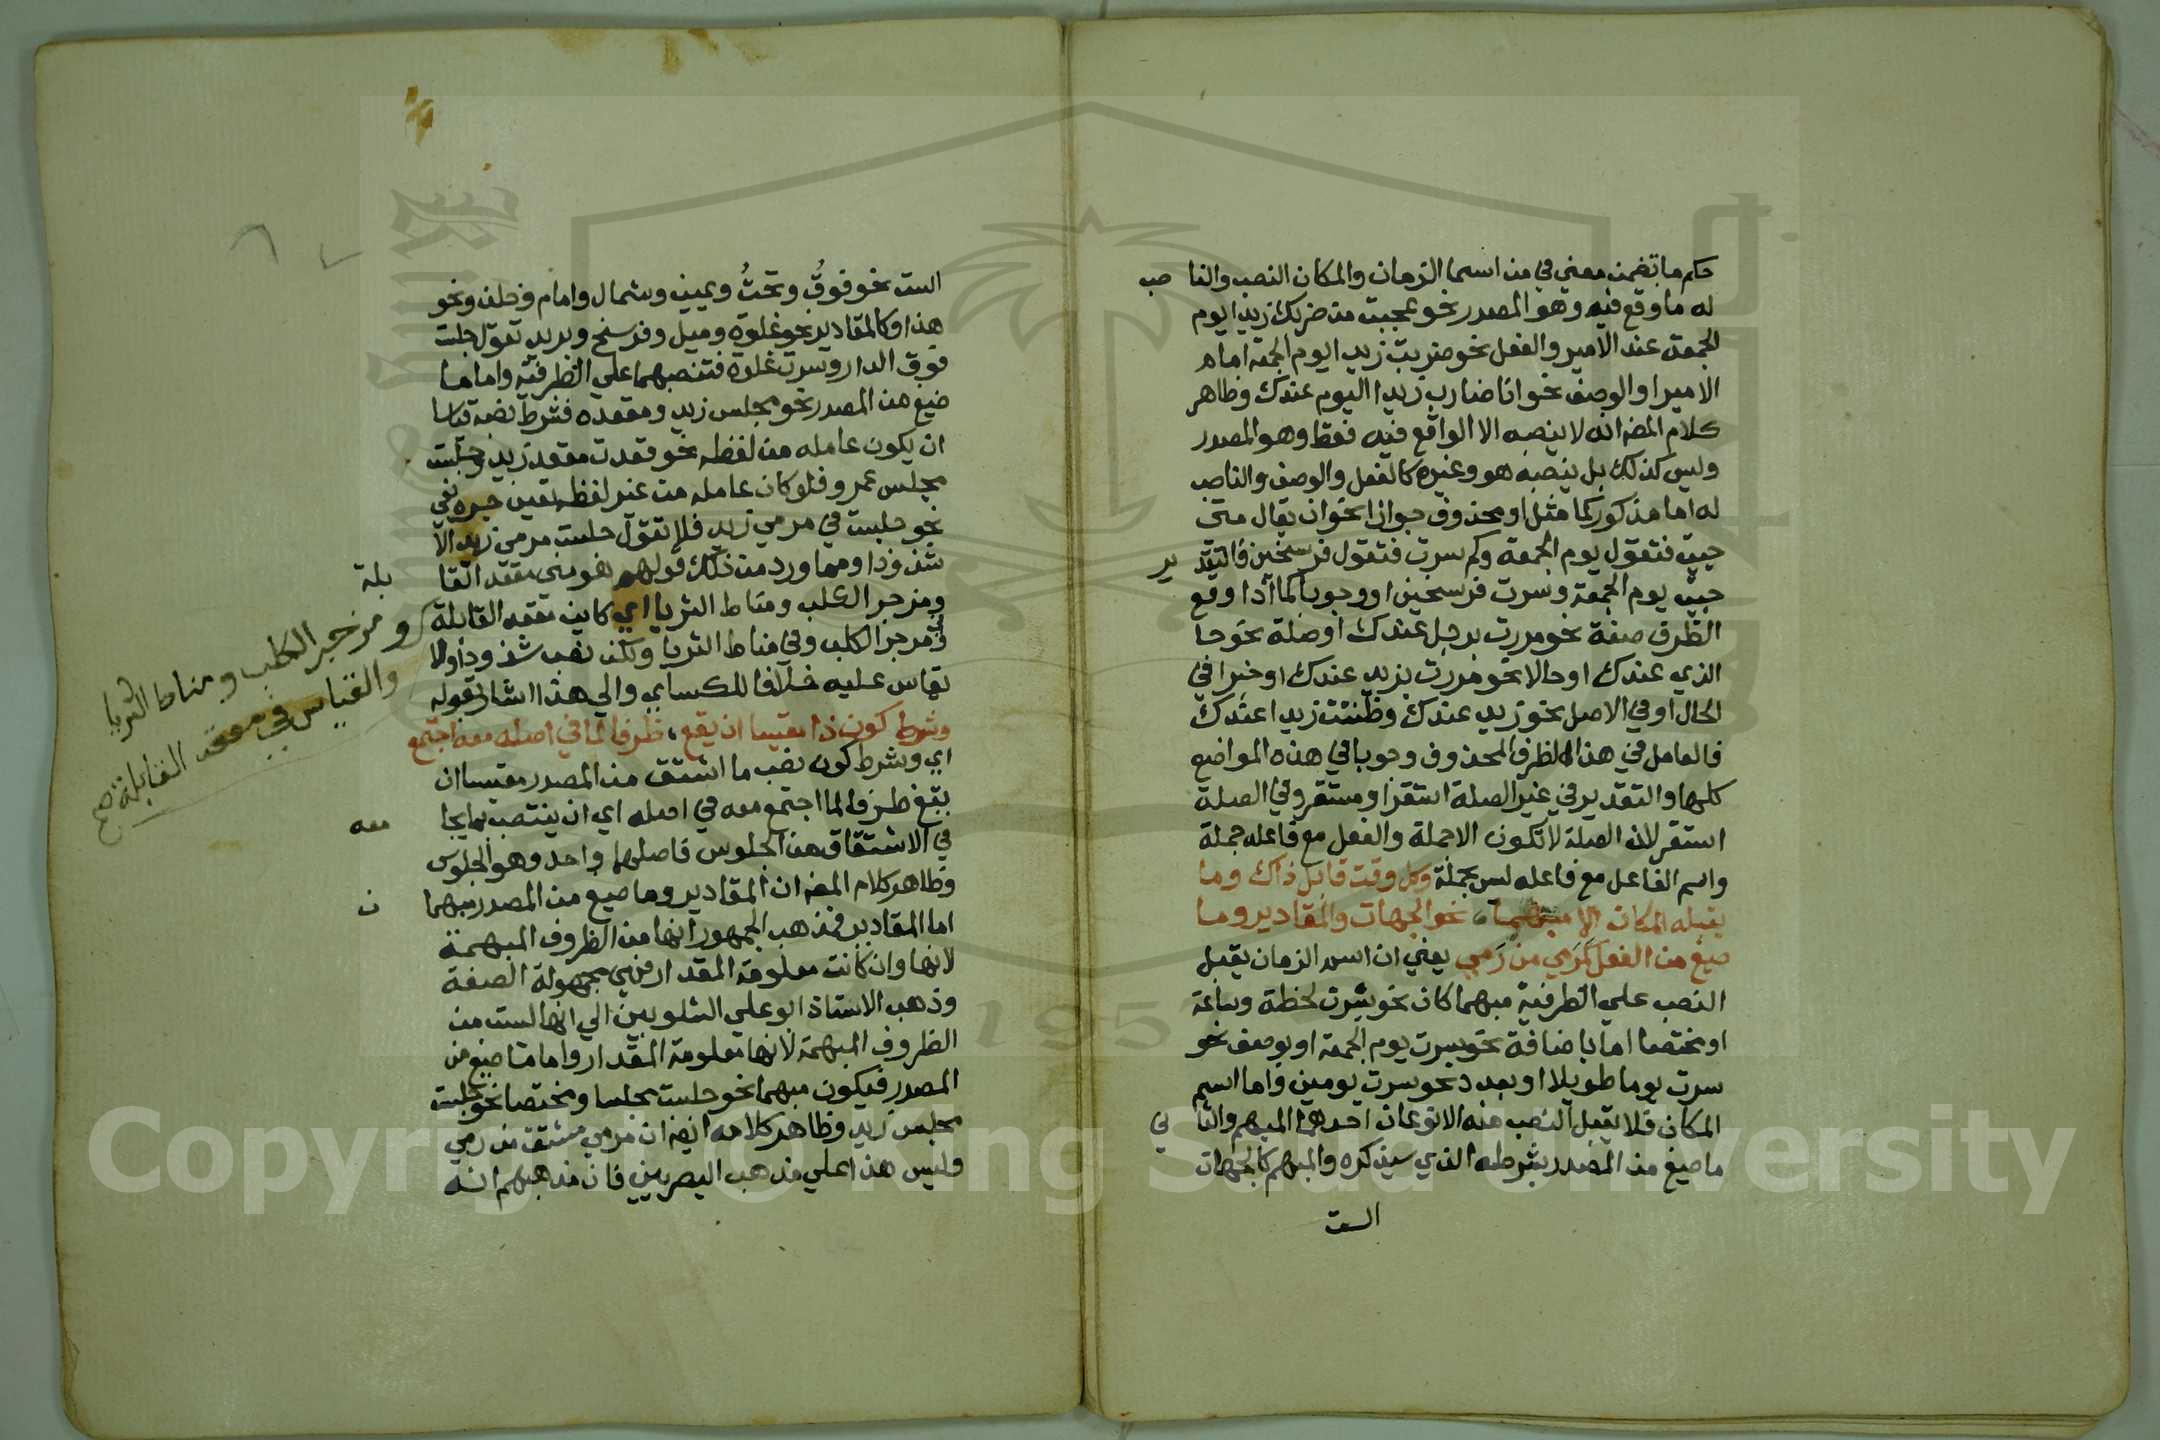 حكم ما تضمن معني في من اسما الزمان والمكان النصب والنا صب
له ما وقع فيه وهو المصدر نحو عجبت من ضربك زيدا يوم
الجمعة عند الامير والفعل نحو ضربت زيدا يوم الجمعة امام
الامير او الوصف نحو انا ضارب زيدا اليوم عندك وظاهر
كلام المص انه لا ينصبه الا الواقع فيه فقط وهو المصدر
وليس كذلك بل ينصبه هو وغيره كالفعل والوصف والناصب
له اما مذكور كما مثل او محذوف جوازا نحو ان يقال متي
جيت فتقول يوم الجمعة وكم سرت فتقول فرسخين فالتقد ير
جيت يوم الجمعة وسرت فرسخين او وجوبا كما اذا وقع
الظرف صفة نحو مررت برجل عندك او صلة نحو جا
الذي عندك او حالا نحو مررت بزيد عندك او خبرا في
الحال او في الاصل نحو زيد عندك وظننت زيدا عندك
فالعامل في هذا الظرف المحذوف وجوبا في هذه المواضع
كلها والتقدير في غير الصلة استقر او مستقر وفي الصلة
استقر لان الصلة لا تكون الا جملة والفعل مع فاعله جملة
واسم الفاعل مع فاعله ليس بجملة وكل وقت قابل ذاك وما
يقبله المكان الا مبهما نحو الجهات والمقادير وما
صيغ من الفعل كمرمي من رمي يعني ان اسم الزمان يقبل
النصب علي الظرفية مبهما كان نحو سرت لحظة وساعة
او مختصا اما باضافة نحو سرت يوم الجمعة او بوصف نحو
سرت يوما طويلا او بعدد نحو سرت يومين واما اسم
المكان فلا يقبل النصب منه الا نوعان احدهما المبهم والثا ني
ما صيغ من المصدر بشرطه الذي سيذكره والمبهم كالجهات
الست
الست نحو فوق وتحت ويمين وشمال وامام وخلف ونحو
هذا وكالمقادير نحو غلوة وميل وفرسخ وبريد تقول جلست
فوق الدار وسرت غلوة فتنصبهما علي الظرفية واما ما
صيغ من المصدر نحو مجلس زيد ومقعده فشرط نصبه قياسا
ان يكون عامله من لفظه نحو قعدت مقعد زيد وجلست
مجلس عمرو فلو كان عامله من غير لفظه تعين جره بفي
نحو جلست في مرمي زيد فلا تقول جلست مرمي زيد الا
شذوذا ومما ورد من ذلك قولهم هو مني مقعد القا بلة
ومزجر الكلب ومناط الثريا اي كاين مقعد القابلة
ومزجر الكلب وفي مناط الثريا ولكن نصب شذوذا ولا
يقاس عليه خلافا للكسايي والي هذا اشار بقوله
وشرط كون ذا مقيسا ان يقع ظرفا لما في اصله معه اجتمع
اي وشرط كون نصب ما اشتق من المصدر مقيسا ان
يقع ظرفا لما اجتمع معه في اصله اي ان ينتصب بما يجا معه
في الاشتقاق من الجلوس فاصلهما واحد وهو الجلوس
وظاهر كلام المص ان المقادير وما صيغ من المصدر مبهما ن
اما المقادير فمذهب الجمهور انها من الظروف المبهمة
لانها وان كانت معلومة المقدار فهي مجهولة الصفة
وذهب الاستاذ ابو علي الشلوبين الي انها ليست من
الظروف المبهمة لانها معلومة المقدار واما ما صيغ من
المصدر فيكون مبهما نحو جلست مجلسا ومختصا نحو جلست
مجلس زيد وظاهر كلامه ايضا ان مرمي مشتق من رمي
وليس هذا علي مذهب البصريين فان مذهبهم انه
ومزجر الكلب ومناط الثريا
والقياس في مقعد القابلة صح
1957
Copyright © King Saud University